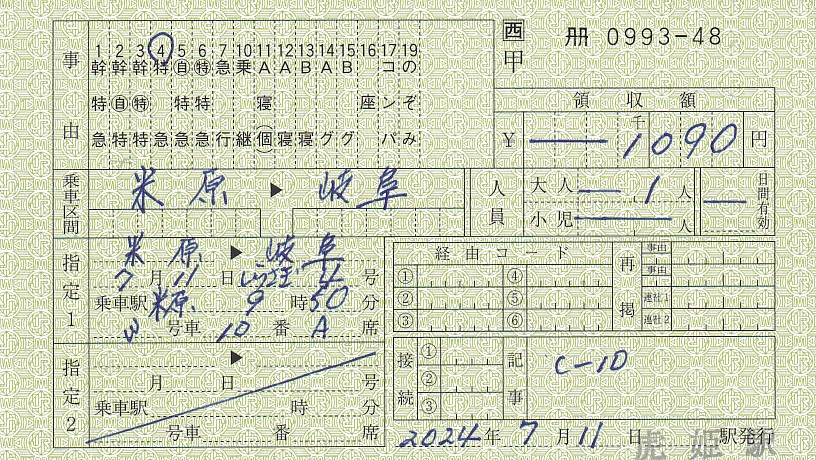 西 册 0993-48
甲
事由
1 2 3 4 5 6 7 10 11 12 13 14 15 16 17 19
幹 幹 幹 特 自 特 急 乗 A A B A B コ の
特 自 特 特 特 寝 座 ン ぞ
急 特 特 急 急 急 行 継 個 寝 寝 グ グ パ み
領収額
¥ 千 1090 円
乗車区間 米原 ▶ 岐阜
人員 大人 1 人
小児 人
日間有効
指定1 米原 ▶ 岐阜
7月11日 しらさぎ 4号
乗車駅 米原 9時50分
号車 10番 A席
経由コード
① ④
② ⑤
③ ⑥
再掲 事由
事由
連社1
連社2
指定2 ▶
月 日 号
乗車駅 時 分
号車 番 席
接続 ①
②
③
記事 C-1D
2024年7月11日 虎姫駅 駅発行